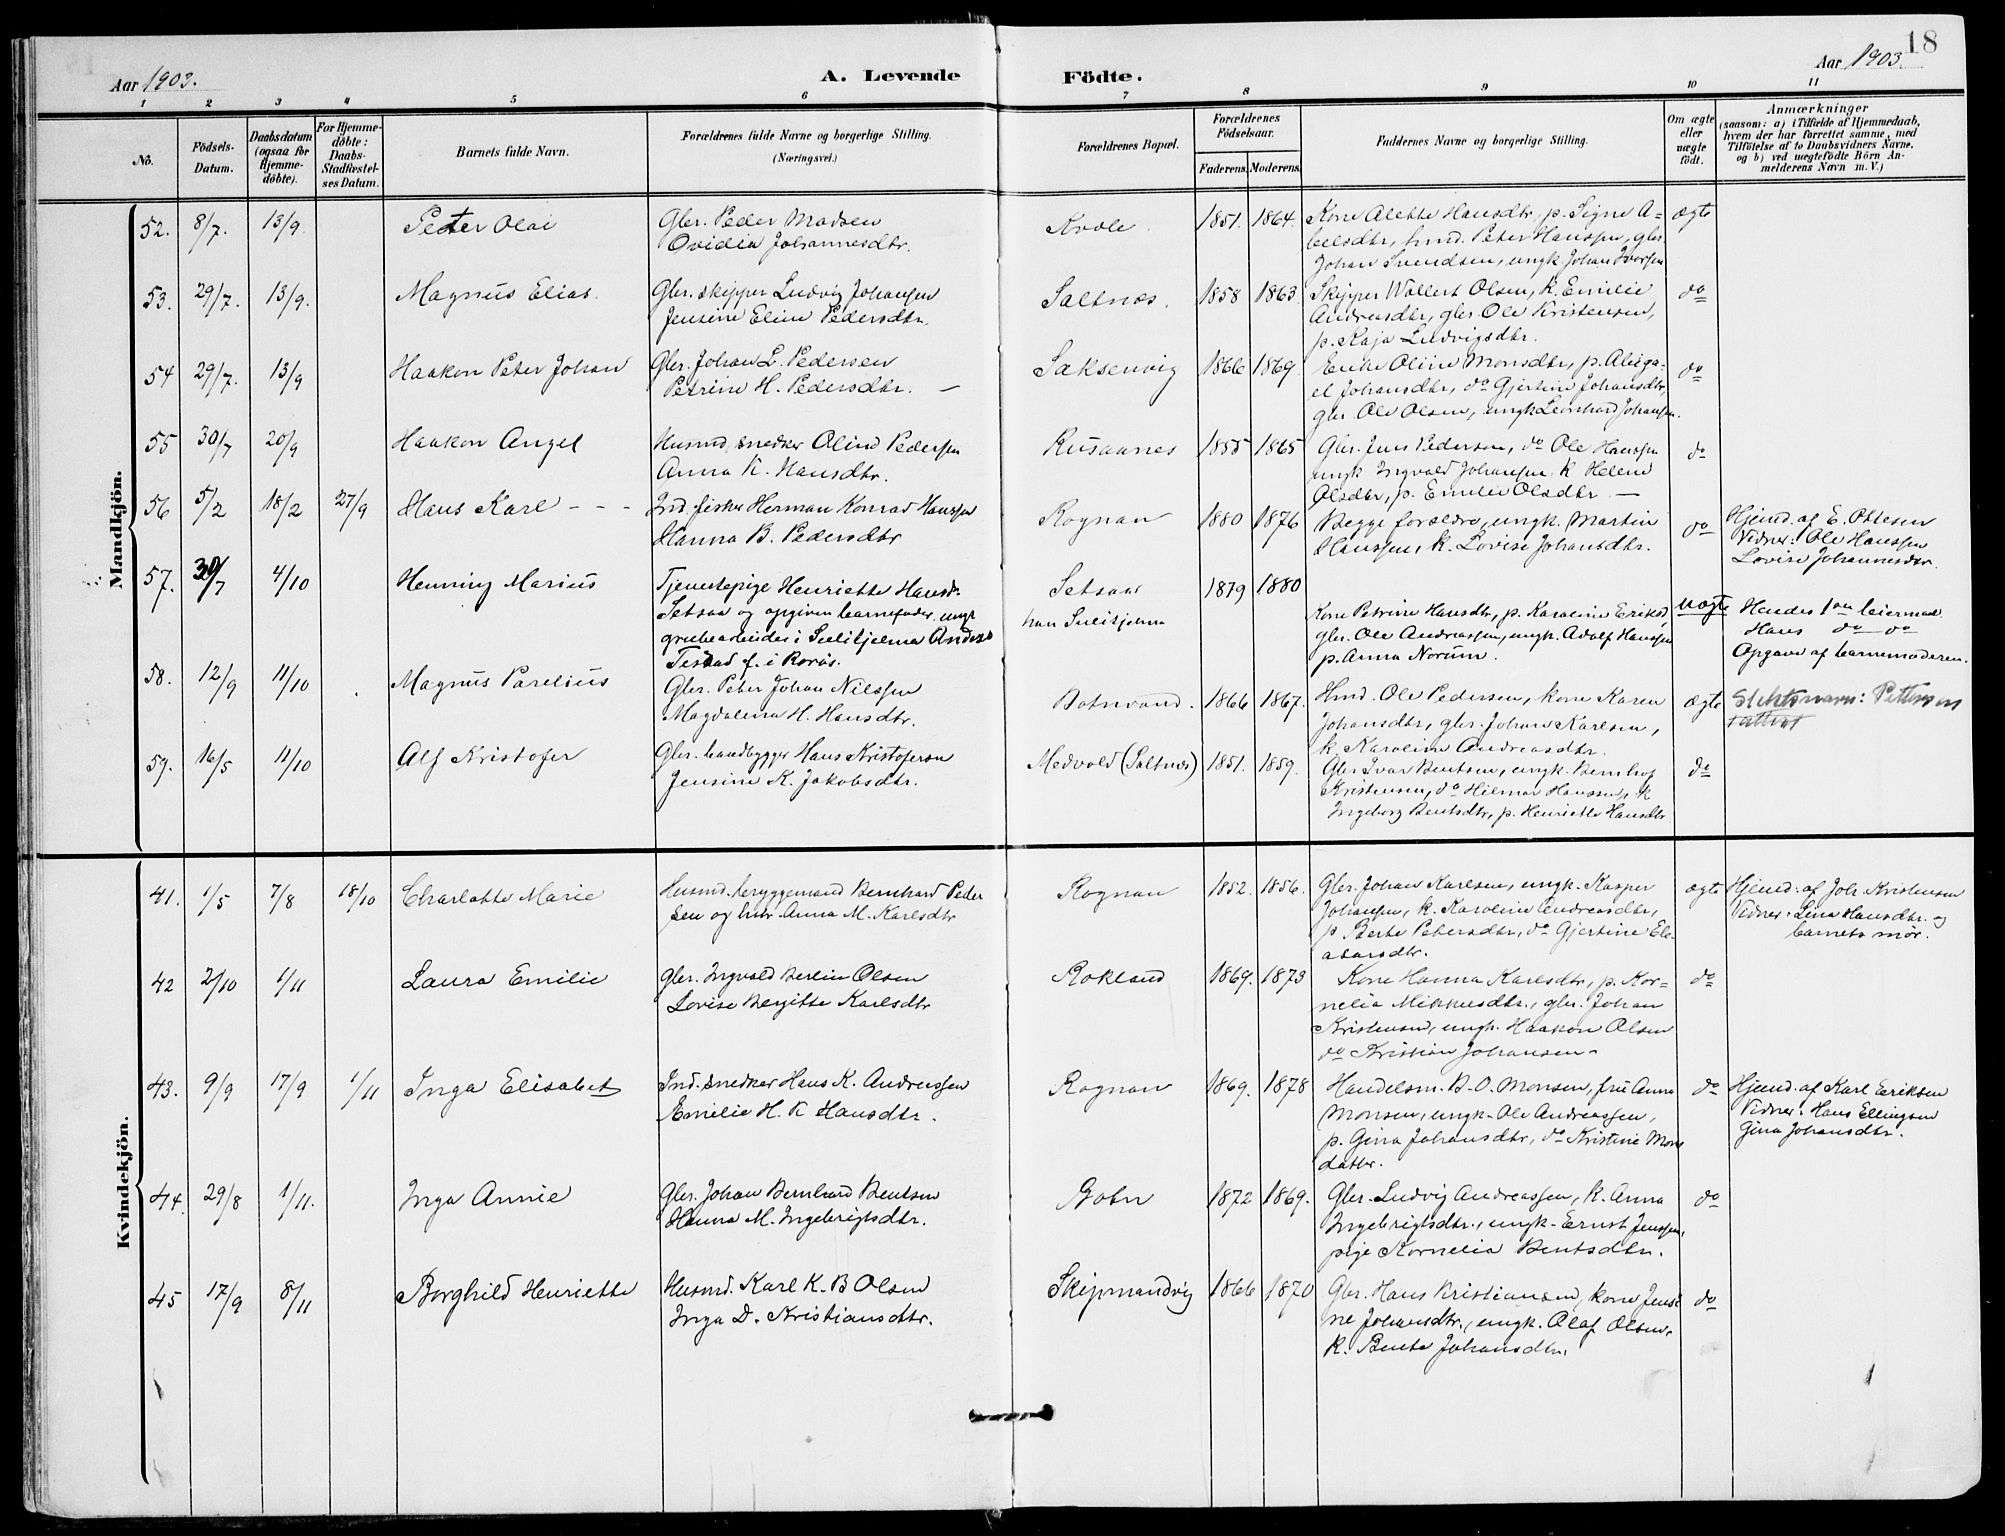 18
Aar 1903.
A. Levende
Födte.
Aar 1903.
1 2 3 4 5 6 7 8 9 10 11
No.
Födsels-Datum.
Daabsdatum (ogsaa for Hjemme-döbte).
For Hjemme-döbte: Daabs-Stadfæstel-ses Datum.
Barnets fulde Navn.
Forældrenes fulde Navne og borgerlige Stilling.
(Næringsvei.)
Forældrenes Bopæl.
Forældrenes Födselsaar.
Faderens. Moderens.
Faddernes Navne og borgerlige Stilling.
Om ægte eller uægte födt.
Anmærkninger
(saasom: a) i Tilfælde af Hjemmedaab,
hvem der har forrettet samme, med
Tilföielse af to Daabsvidners Navne,
og b) ved uægtefödte Börn An-
melderens Navn m. V.)
Mandkjön.
52. 8/7. 13/9 Peter Olai
Gbr. Peder Madsen
Ovidia Johannesdtr.
Kvole. 1851. 1864.
Kone Alette Hansdtr, p. Signe A=
belsdtr, husmd. Peter Hanssen, gbr.
Johan Svendsen, ungk Johan Ivarsen
ægte
53. 29/7. 13/9. Magnus Elias.
Gbr. skipper Ludvig Johansen
Jensine Eline Pedersdtr.
Saltnes. 1858 1863
Skipper Wollert Olsen, k. Emilie
Andreasdtr, gbr Ole Kristensen,
p. Kaja Ludvigsdtr.
do
54 29/7. 13/9 Haakon Peter Johan
Gbr. Johan L. Pedersen
Petrine H. Pedersdtr. —
Saksenvig 1866 1869.
Enke Oline Monsdtr, p. Abiga-
el Johansdtr, do Gjertine Johansdtr,
gbr. Ole Olsen, ungk Leonhard Johansen.
do
55 30/7 20/9 Haakon Angel
Husmd, snedker Olind Pedersen
Anna K. Hansdtr.
Rusaanes 1855 1865
Gbr. Jens Pedersen, do Ole Hanssen
ungk Ingvald Johansen k Helene
Olsdtr, p. Emilie Olsdtr —
do
56 5/2 18/2 27/9 Hans Karl - - -
Ind. fisker Herman Konrad Hanssen
Hanna B. Pedersdtr
Rognan 1880 1876
Begge forældre, ungk. Martin
Hanssen, k. Lovise Johansdtr.
do
Hjemd. af E. Ottesen
Vidner: Ole Hanssen
Lovise Johannesdtr.
57. 30/7 4/10 Henning Marius
Tjenestepige Henriette Hansdtr
Setsaa og opgiven barnefader ungk
grubearbeider i Sulitjelma Anders
f. i Roros.
Setsaa
han Sulitjelma
1879 1880
Kone Petrine Hansdtr, p. Karoline Eriksd,
gbr. Ole Andreassen, ungk. Adolf Hanssen
p. Anna Norum.
uægte
Hendes 1ste leiermaal
Hans do do
Opgave af barnemoderen.
58. 12/9 11/10 Magnus Parelius
Gbr. Peter Johan Nilssen
Magdalena H. Hansdtr.
Botnvand. 1866 1867.
Hmd. Ole Pedersen, kone Karen
Johansdtr, gbr. Johan Karlsen,
k. Karoline Andreasdtr.
ægte
Slektsnavn: Pettersen
59. 16/5 11/10 Alf Kristofer
Gbr. Hans Kristofersen
Jensine K. Jakobsdtr.
Medvold (Saltnes) 1851. 1859.
Gbr Ivar Bentsen, ungk. Bernhof
Kristensen, do Hilmar Hanssen, k
Ingeborg Bentsdtr, p. Henriette Hansdtr
do
Kvindekjön.
41. 1/5 7/8 18/10 Charlotte Marie
Husmd. bryggemand Bernhard Peder
sen og hstr. Anna M. Karlsdtr
Rognan 1852. 1856.
Gbr. Johan Karlsen, ungk. Kasper
Johansen, k. Karoline Andreasdtr,
p. Berte Petersdtr, do Gjertine Ele-
asarsdtr.
ægte
Hjemd. af Joh. Kristensen
Vidner: Lina Hansdtr. og
barnets mor.
42 2/10 1/11 Laura Emilie
Gbr. Ingvald Berlin Olsen
Lovise Bergitte Karlsdtr
Rokland 1869. 1873
Kone Hanna Karlsdtr, p. Kor=
nelia Mikkelsdtr., gbr. Johan
Kristensen, ungk. Haakon Olsen
do Kristian Johansen-
do
43. 9/9 17/9 1/11 Inga Elisabet
Ind. snedker Hans K. Andreassen
Emilie H. K Hansdtr.
Rognan 1869. 1878
Handelsm. B. O. Monsen, frue Anna
Monsen, ungk. Ole Andreassen,
p. Gina Johansdtr, do Kristine Mons
datter.
do
Hjemd. af Karl Eriksen
Vidner: Hans Ellingsen
Gina Johansdtr.
44. 29/8 1/11. Inga Annie
Gbr. Johan Bernhard Bentsen
Hanna M. Ingebrigtsdtr.
Botn 1872 1869.
Gbr. Ludvig Andreassen, k. Anna
Ingebrigtsdtr., ungk. Ernst Jenssen,
pige Kornelia Bentsdtr.
do
45 17/9 8/11 Borghild Henriette
Husmd. Karl K. B Olsen
Inga D. Kristiansdtr.
Skipmandvig 1866 1870
Gbr. Hans Kristiansen, kone Jensi
ne Johansdtr., ungk. Olaf Olsen,
k. Bente Johansdtr.
do